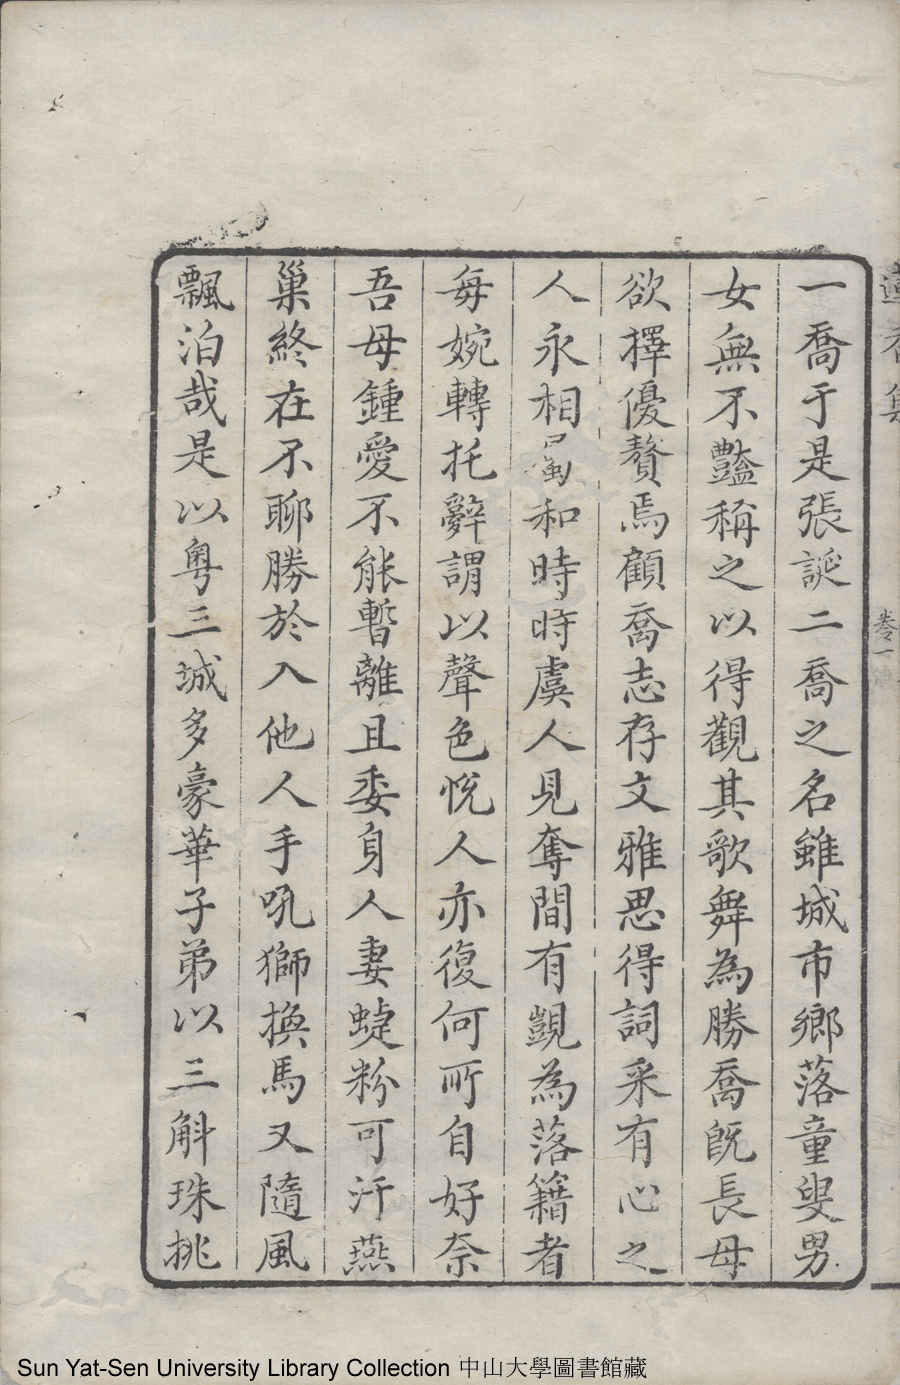 一喬于是張誕二喬之名雖城市鄉落童叟男
女無不豔稱之以得觀其歌舞為勝喬旣長母
欲擇優贅焉顧喬志存文雅思得詞采有心之
人永相 和時時虞人見奪間有覬為落籍者
每婉轉托辭謂以聲色悅人亦復何所自好奈
吾母鍾愛不能暫離且委身人妻蜨粉可汗燕
巢終在不聊勝於入他人手吼獅換馬又隨風
飄泊哉是以粵三城多豪華子弟以三斛珠挑
卷一
Sun Yat-Sen University Library Collection 中山大學圖書館藏